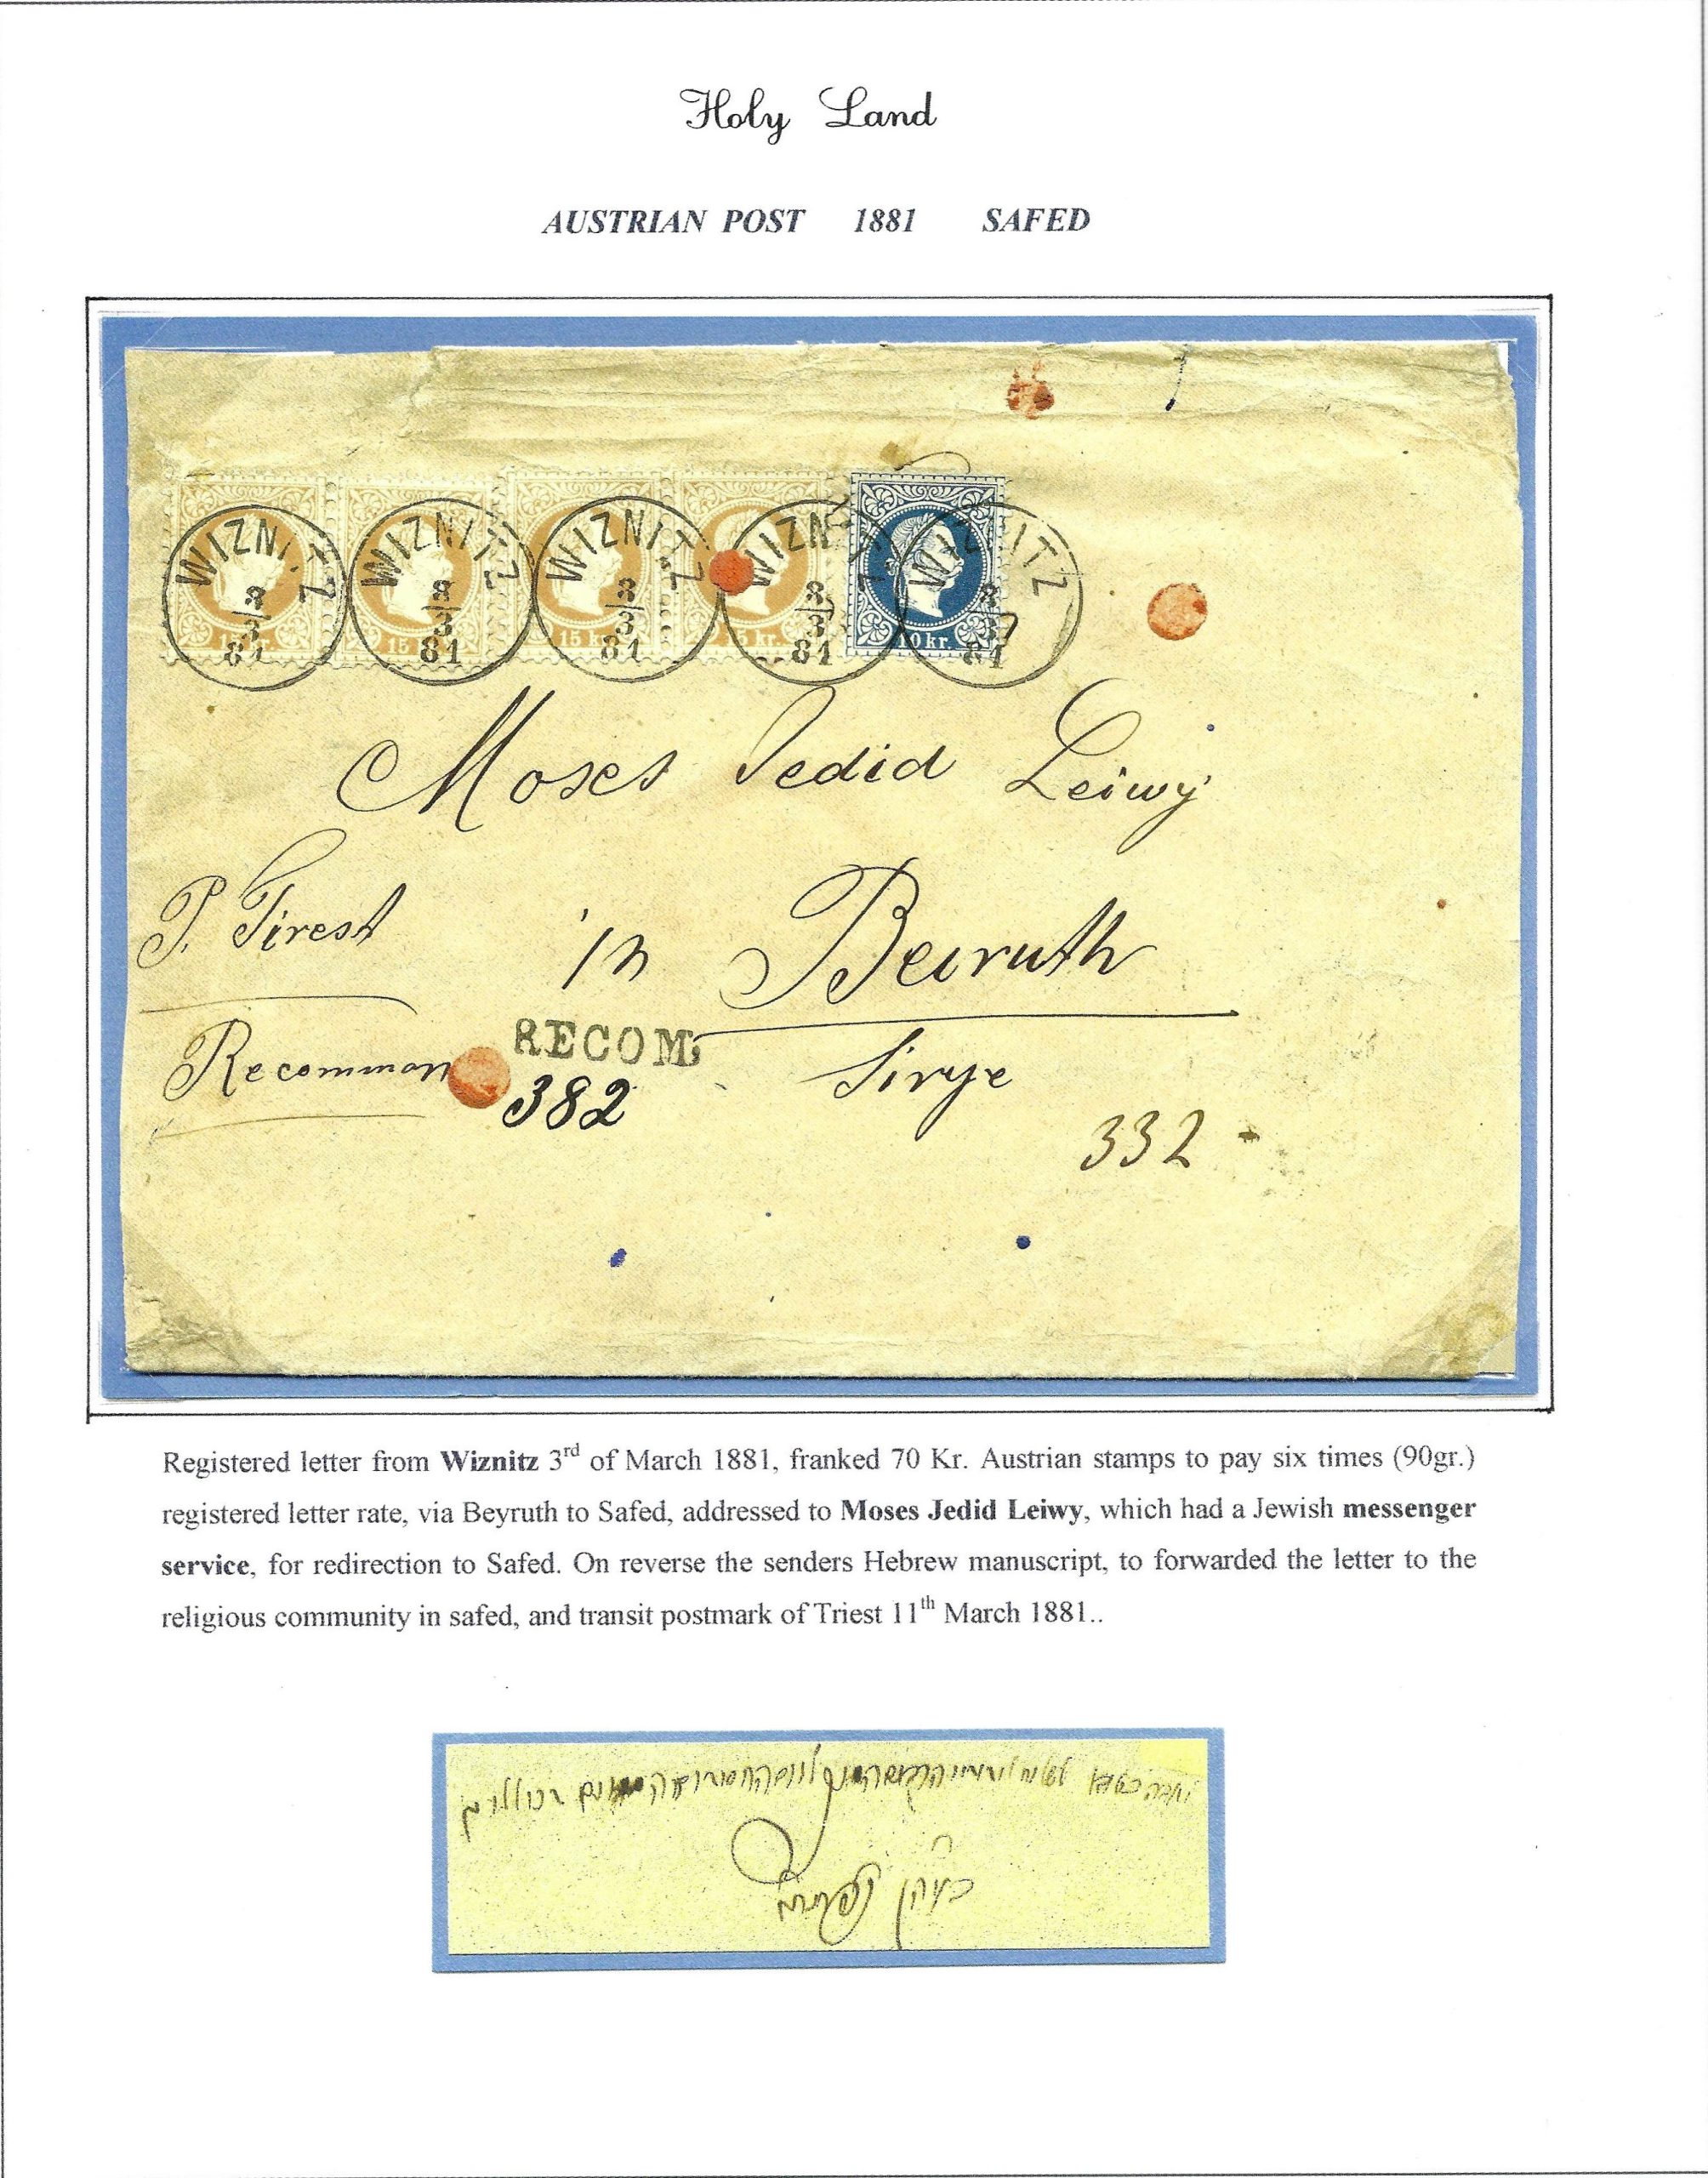 Holy Land
AUSTRIAN POST 1881 SAFED
WIZNITZ 8/3 81
WIZNITZ 8/3 81
WIZNITZ 8/3 81
WIZNITZ 8/3 81
WIZNITZ 8/3 81
15 kr. 15 kr. 15 kr. 15 kr. 10 kr.
Moses Jedid Leiwy
P. Tirest
in Beiruth
Recomman
RECOM.
382
Sirye
332
Registered letter from Wiznitz 3rd of March 1881, franked 70 Kr. Austrian stamps to pay six times (90gr.)
registered letter rate, via Beyruth to Safed, addressed to Moses Jedid Leiwy, which had a Jewish messenger
service, for redirection to Safed. On reverse the senders Hebrew manuscript, to forwarded the letter to the
religious community in safed, and transit postmark of Triest 11th March 1881..